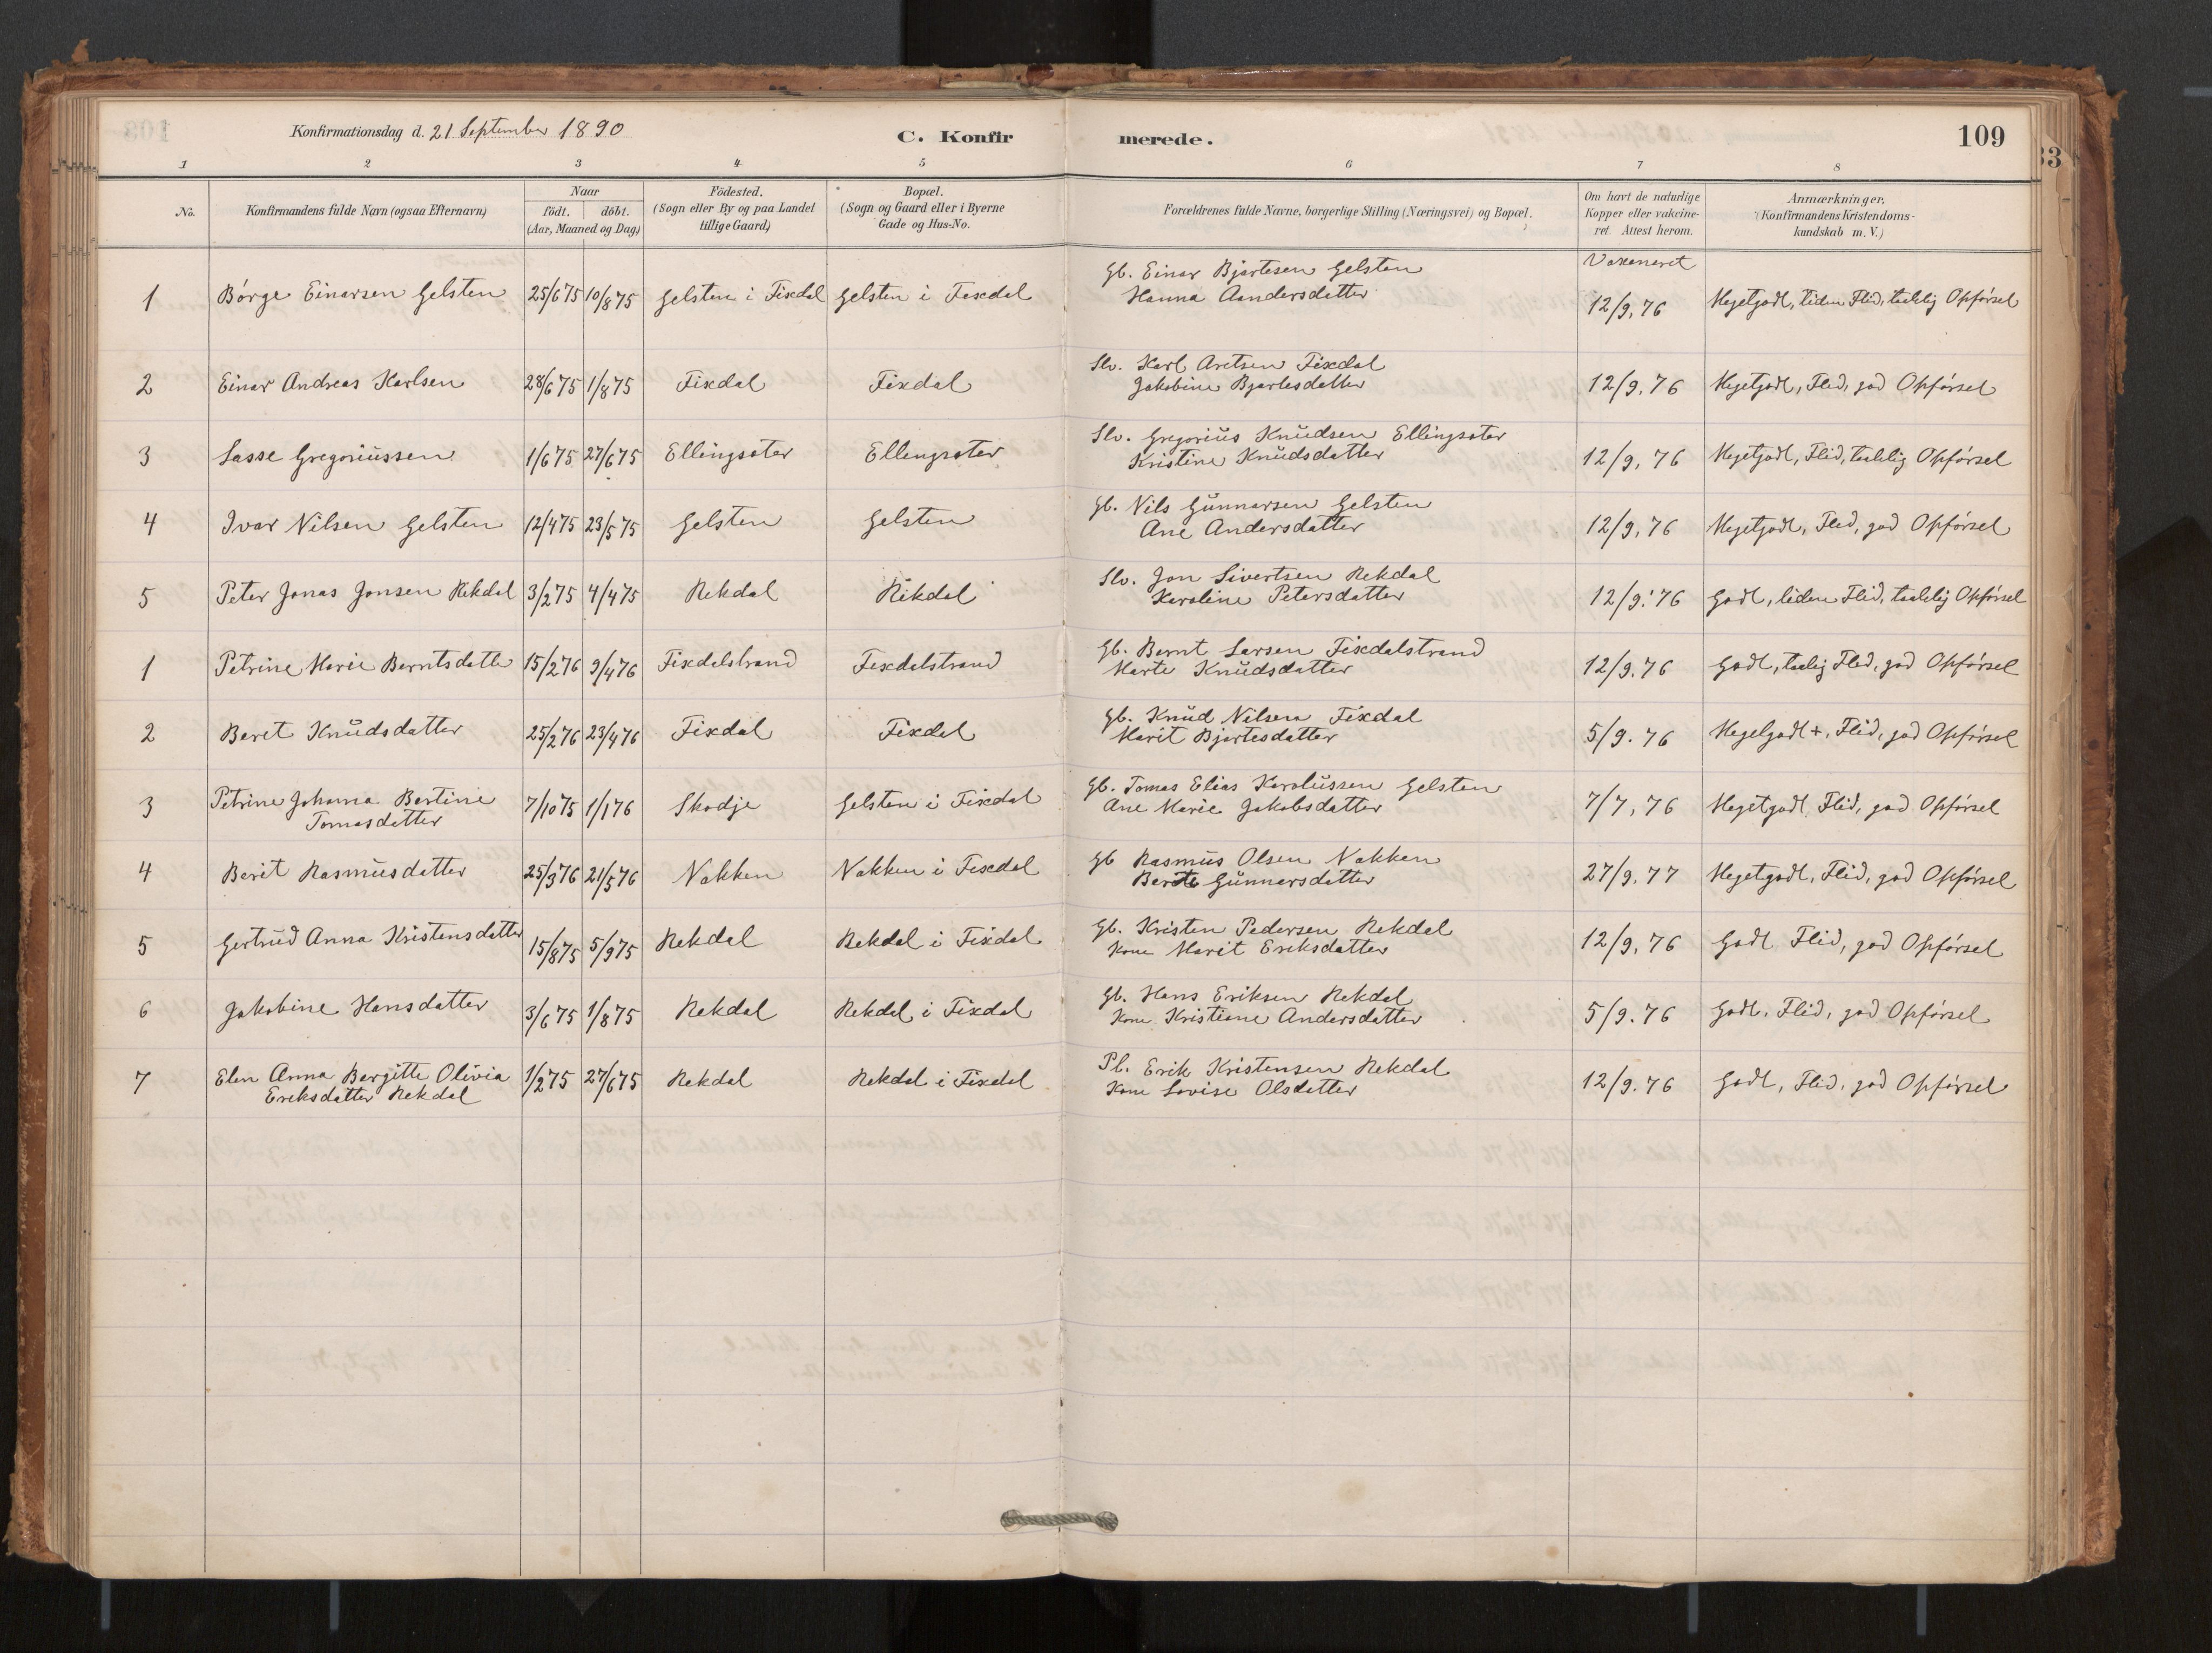 Konfirmationsdag d. 21 September 1890
C. Konfir merede. 109
1 2 3 4 5 6 7 8
No. Konfirmandens fulde Navn (ogsaa Efternavn) Naar födt. döbt. (Aar, Maaned og Dag) Födested. (Sogn eller By og paa Landet tillige Gaard) Bopæl. (Sogn og Gaard eller i Byerne Gade og Hus-No. Forældrenes fulde Navne, borgerlige Stilling (Næringsvei) og Bopæl. Om havt de naturlige Kopper eller vakcineret. Attest herom. Anmærkninger. (Konfirmandens Kristendomskundskab m. V.)
Vaxeneret
1 Börge Einarsen Gelsten 25/6 75 10/8 75 Gelsten i Fixdal Gelsten i Fixdal Gb. Einar Bjartesen Gelsten
Hanna Aandersdatter 12/9. 76 Megetgodt, liden Flid, taalelig Opförsel
2 Einar Andreas Karlsen 28/6 75 1/8 75 Fixdal Fixdal Slv. Karl Aretsen Fixdal
Jakobine Bjartesdatter 12/9. 76 Megetgodt, Flid, god Opförsel
3 Lasse Gregoriussen 1/6 75 27/6 75 Ellingsæter Ellingsæter Slv. Gregorius Knudsen Ellingsæter
Kristine Knudsdatter 12/9. 76 Megetgodt, Flid, taalelig Opförsel
4 Ivar Nilsen Gelsten 12/4 75 23/5 75 Gelsten Gelsten Gb. Nils Gunnarsen Gelsten
Ane Andersdatter 12/9. 76 Megetgodt, Flid, god Opförsel
5 Peter Jonas Jonsen Rekdal 3/2 75 4/4 75 Rekdal Rekdal Slv. Jon Sivertsen Rekdal
Karoline Petersdatter 12/9. 76 Godt, liden Flid, taalelig Opförsel
1 Petrine Marie Berntsdatte 15/2 76 9/4 76 Fixdalstrand Fixdalstrand Gb. Bernt Larsen Fixdalstrand
Marte Knudsdatter 12/9. 76 Godt, taalig Flid, god Opförsel
2 Beret Knudsdatter 25/2 76 23/4 76 Fixdal Fixdal Gb. Knud Nilsen Fixdal
Marit Bjartesdatter 5/9. 76 Megetgodt +, Flid, god Opförsel
3 Petrine Johanna Bertine
Tomasdatter 7/10 75 1/1 76 Skodje Gelsten i Fixdal Gb. Tomas Elias Karolussen Gelsten
Ane Marie Jakobsdatter 7/7. 76 Megetgodt, Flid, god Opförsel
4 Berit Rasmusdatter 25/3 76 21/5 76 Nakken Nakken i Fixdal Gb Rasmus Olsen Nakken
Gunnarsdatter 27/9. 77 Megetgodt, Flid, god Opförsel
5 Gertrud Anna Kristensdatter 15/8 75 5/9 75 Rekdal Rekdal i Fixdal Gb. Kristen Pedersen Rekdal
Kone Marit Eriksdatter 12/9. 76 Godt Flid, god Opförsel
6 Jakobine Hansdatter 3/6 75 1/8 75 Rekdal Rekdal i Fixdal Gb. Hans Eriksen Rekdal
Kone Kristiane Andersdatter 5/9. 76 Godt, Flid, god Opförsel
7 Elen Anna Bergitte Olivia
Eriksdatter Rekdal 1/2 75 27/6 75 Rekdal Rekdal i Fixdal Pl. Erik Kristensen Rekdal
Kone Lovise Olsdatter 12/9. 76 Godt, Flid, god Opförsel